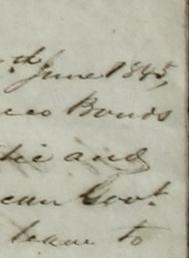 d June 1845,
co Bonds
tic and
can Govt
leave to